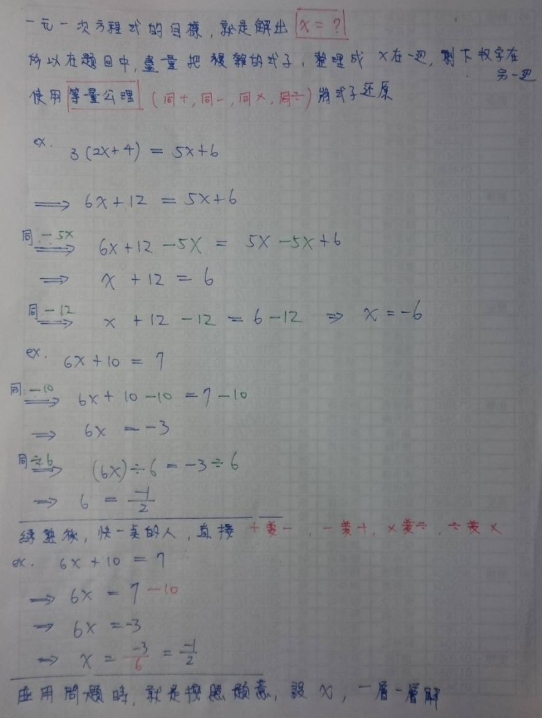 一元一次方程式的目標，就是解出 x = ?
所以在題目中，盡量把複雜的式子，整理成 x在一邊，剩下數字在另一邊
使用 等量公理 (同+，同-，同×，同÷) 將式子還原
ex.
3(2x+4) = 5x+6
⇒ 6x+12 = 5x+6
同-5x ⇒ 6x+12-5x = 5x-5x+6
⇒ x+12 = 6
同-12 ⇒ x+12-12 = 6-12 ⇒ x=-6
ex. 6x+10 = 7
同-10 ⇒ 6x+10-10 = 7-10
⇒ 6x = -3
同÷6 ⇒ (6x)÷6 = -3÷6
⇒ 6 = -1/2
練熟後，快一點的人，直接 +變-，-變+，×變÷，÷變×
ex. 6x+10 = 7
⇒ 6x = 7-10
⇒ 6x = -3
⇒ x = -3/6 = -1/2
應用問題時，就是按照題意，設x，一層一層解